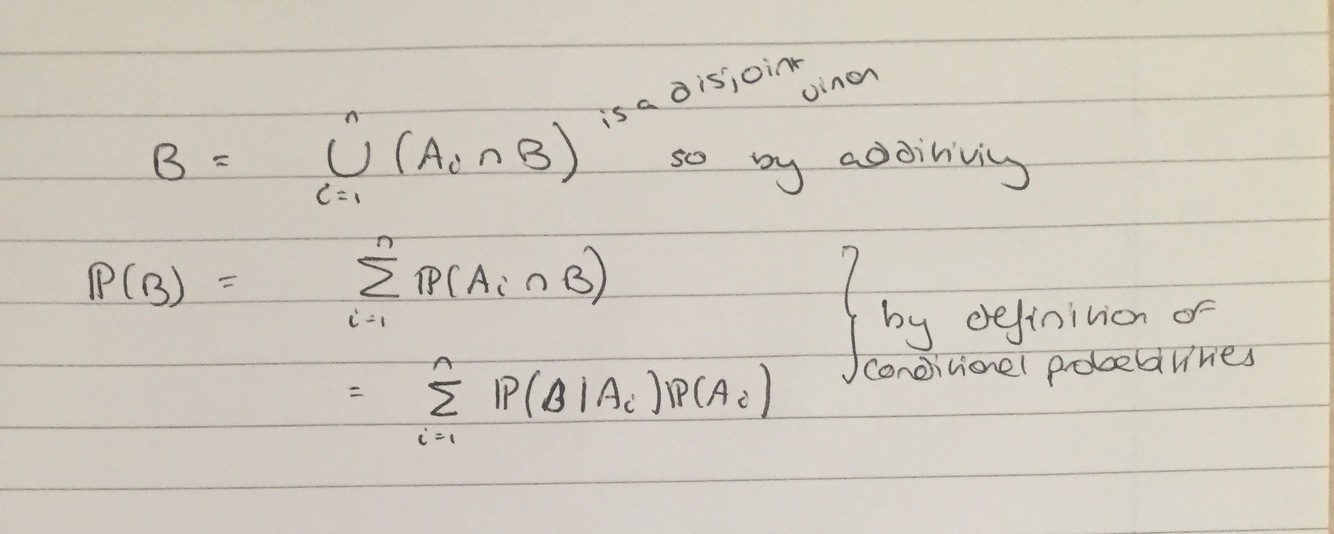 B = ⋃_{i=1}^{n} (A_i ∩ B) is a disjoint union so by additivity
ℙ(B) = ∑_{i=1}^{n} ℙ(A_i ∩ B)
= ∑_{i=1}^{n} ℙ(B|A_i)ℙ(A_i)
} by definition of
conditional probabilities